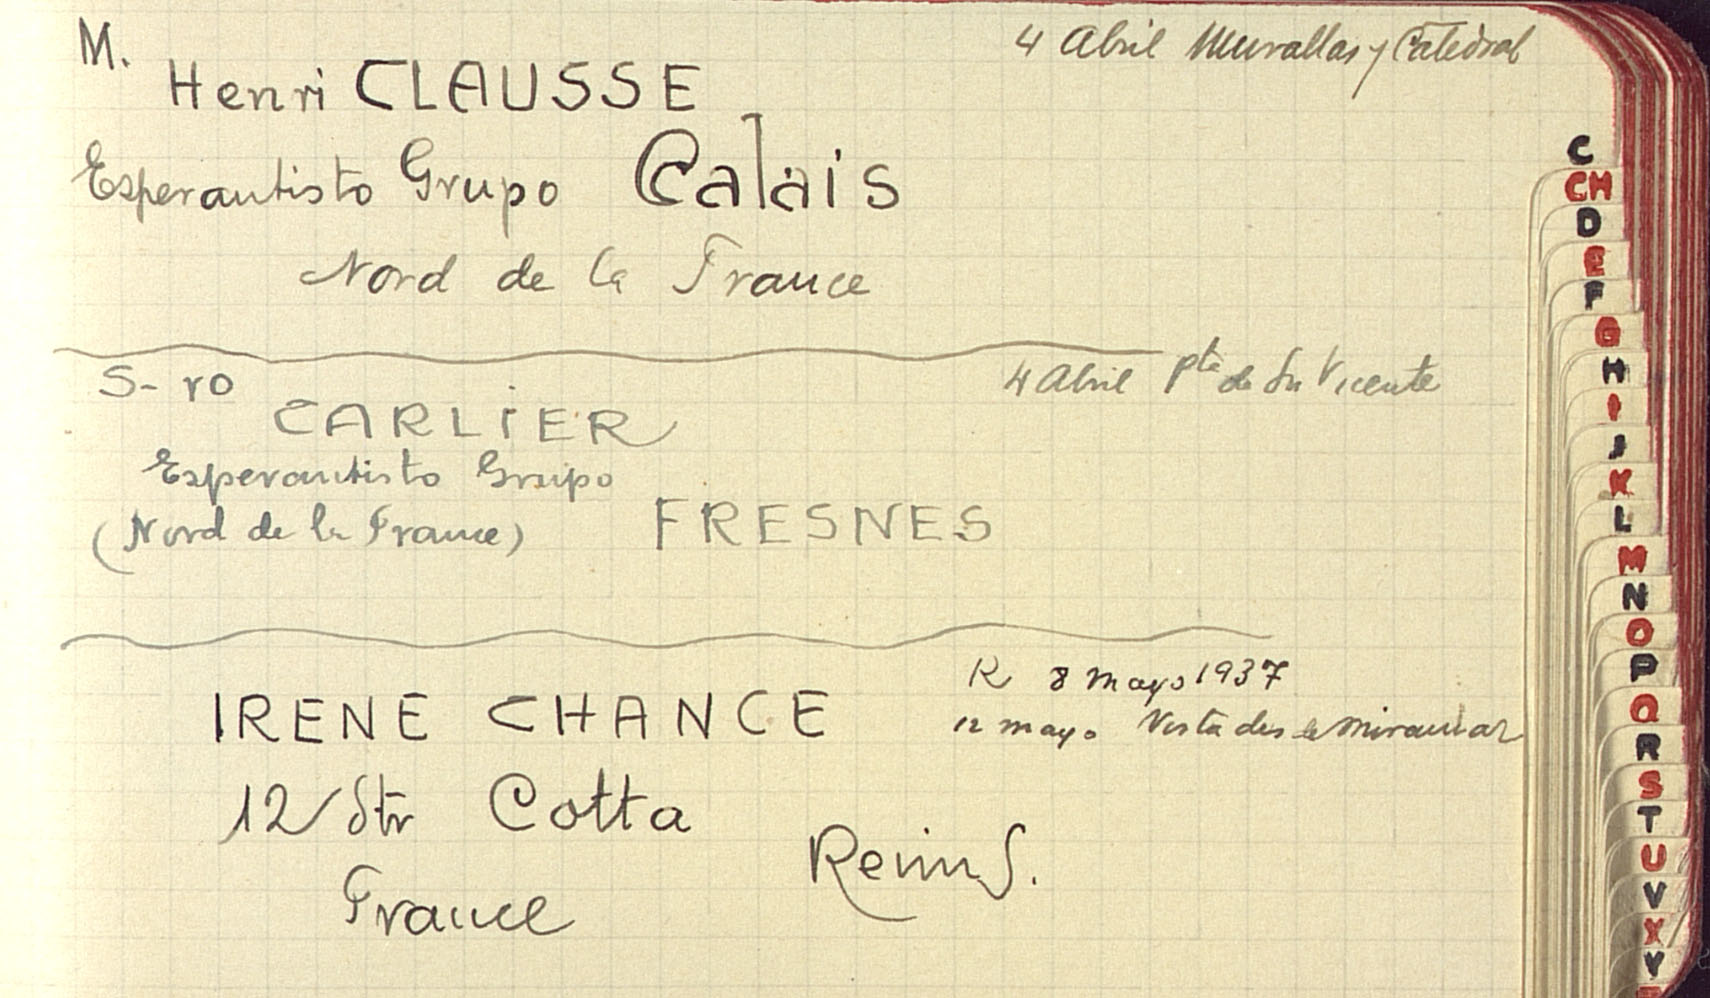 M.
4 Abril Murallas y Catedral
Henri CLAUSSE
Esperantisto Grupo Calais
Nord de la France
S-ro
4 Abril Pta de Sn Vicente
CARLIER
Esperantisto Grupo
(Nord de la France) FRESNES
R 8 mayo 1937
IRENE CHANCE
12 mayo Vista des de Miramar
12 Str Cotta
Reims.
France
C
CH
D
E
F
G
H
I
J
K
L
M
N
O
P
Q
R
S
T
U
V
X
Y